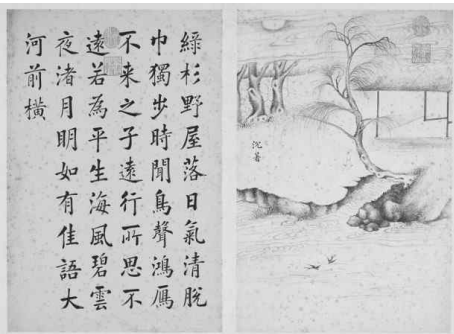 沈著
綠杉野屋落日氣清脫
巾獨步時聞鳥聲鴻鴈
不来之子遠行所思不
遠若為平生海風碧雲
夜渚月明如有佳語大
河前橫